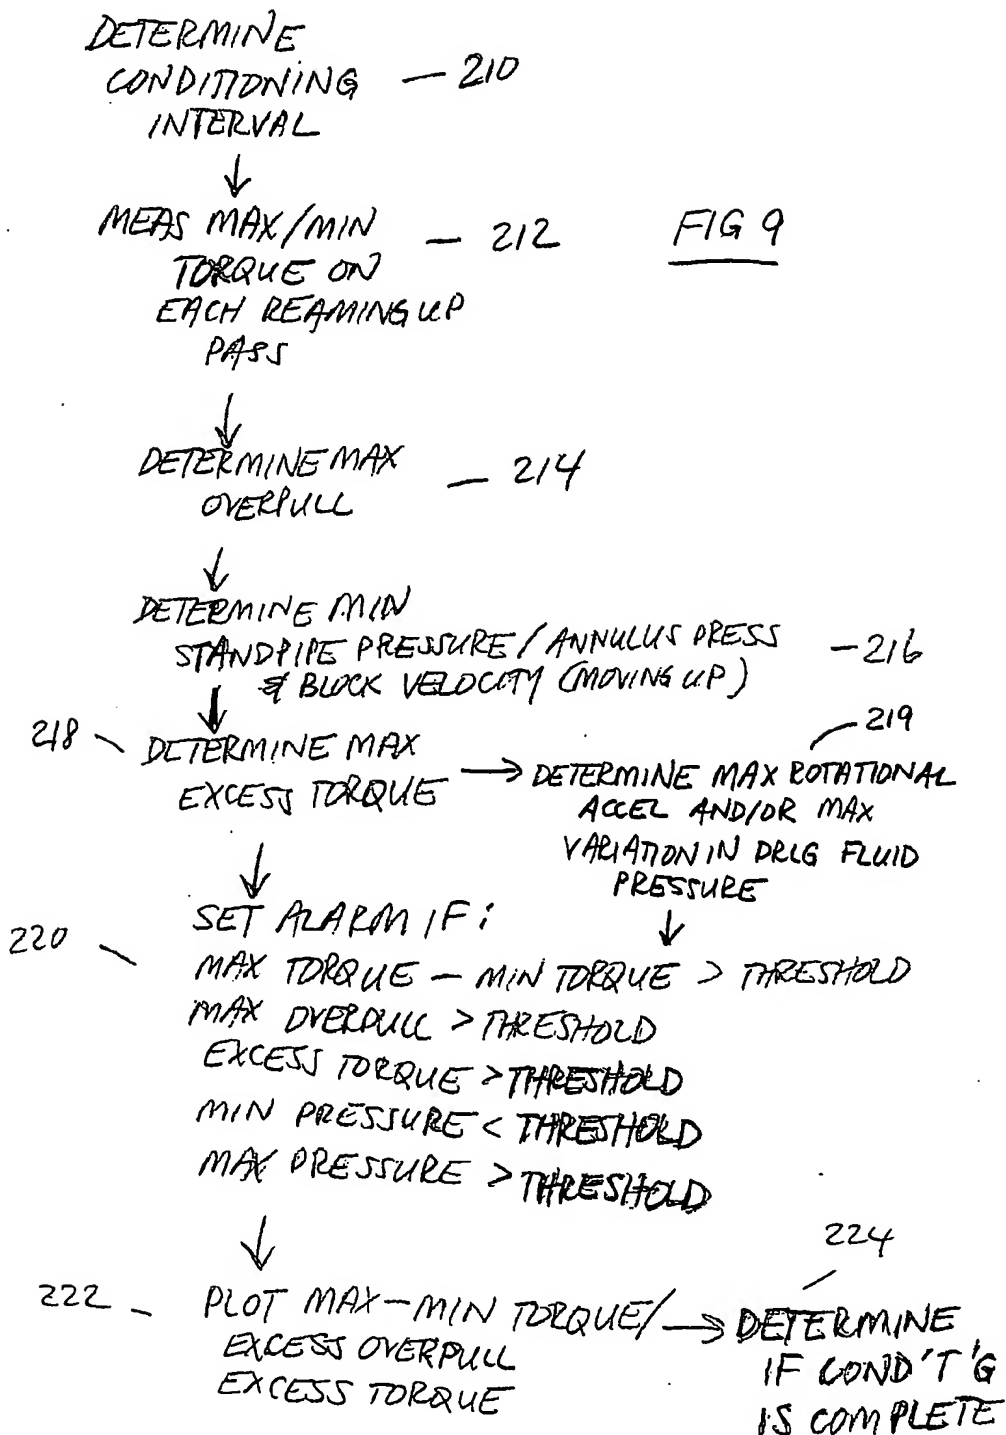 DETERMINE
CONDITIONING — 210
INTERVAL
↓
MEAS MAX/MIN — 212
FIG 9
TORQUE ON
EACH REAMING UP
PASS
↓
DETERMINE MAX — 214
OVERPULL
↓
DETERMINE MIN
STANDPIPE PRESSURE / ANNULUS PRESS — 216
& BLOCK VELOCITY (MOVING UP)
↓
218
DETERMINE MAX
EXCESS TORQUE →
219
DETERMINE MAX ROTATIONAL
ACCEL AND/OR MAX
VARIATION IN DRLG FLUID
PRESSURE
↓
↓
220
SET ALARM IF:
MAX TORQUE — MIN TORQUE > THRESHOLD
MAX OVERPULL > THRESHOLD
EXCESS TORQUE > THRESHOLD
MIN PRESSURE < THRESHOLD
MAX PRESSURE > THRESHOLD
↓
222
PLOT MAX — MIN TORQUE/ →
EXCESS OVERPULL
EXCESS TORQUE
224
DETERMINE
IF COND'T'G
IS COMPLETE